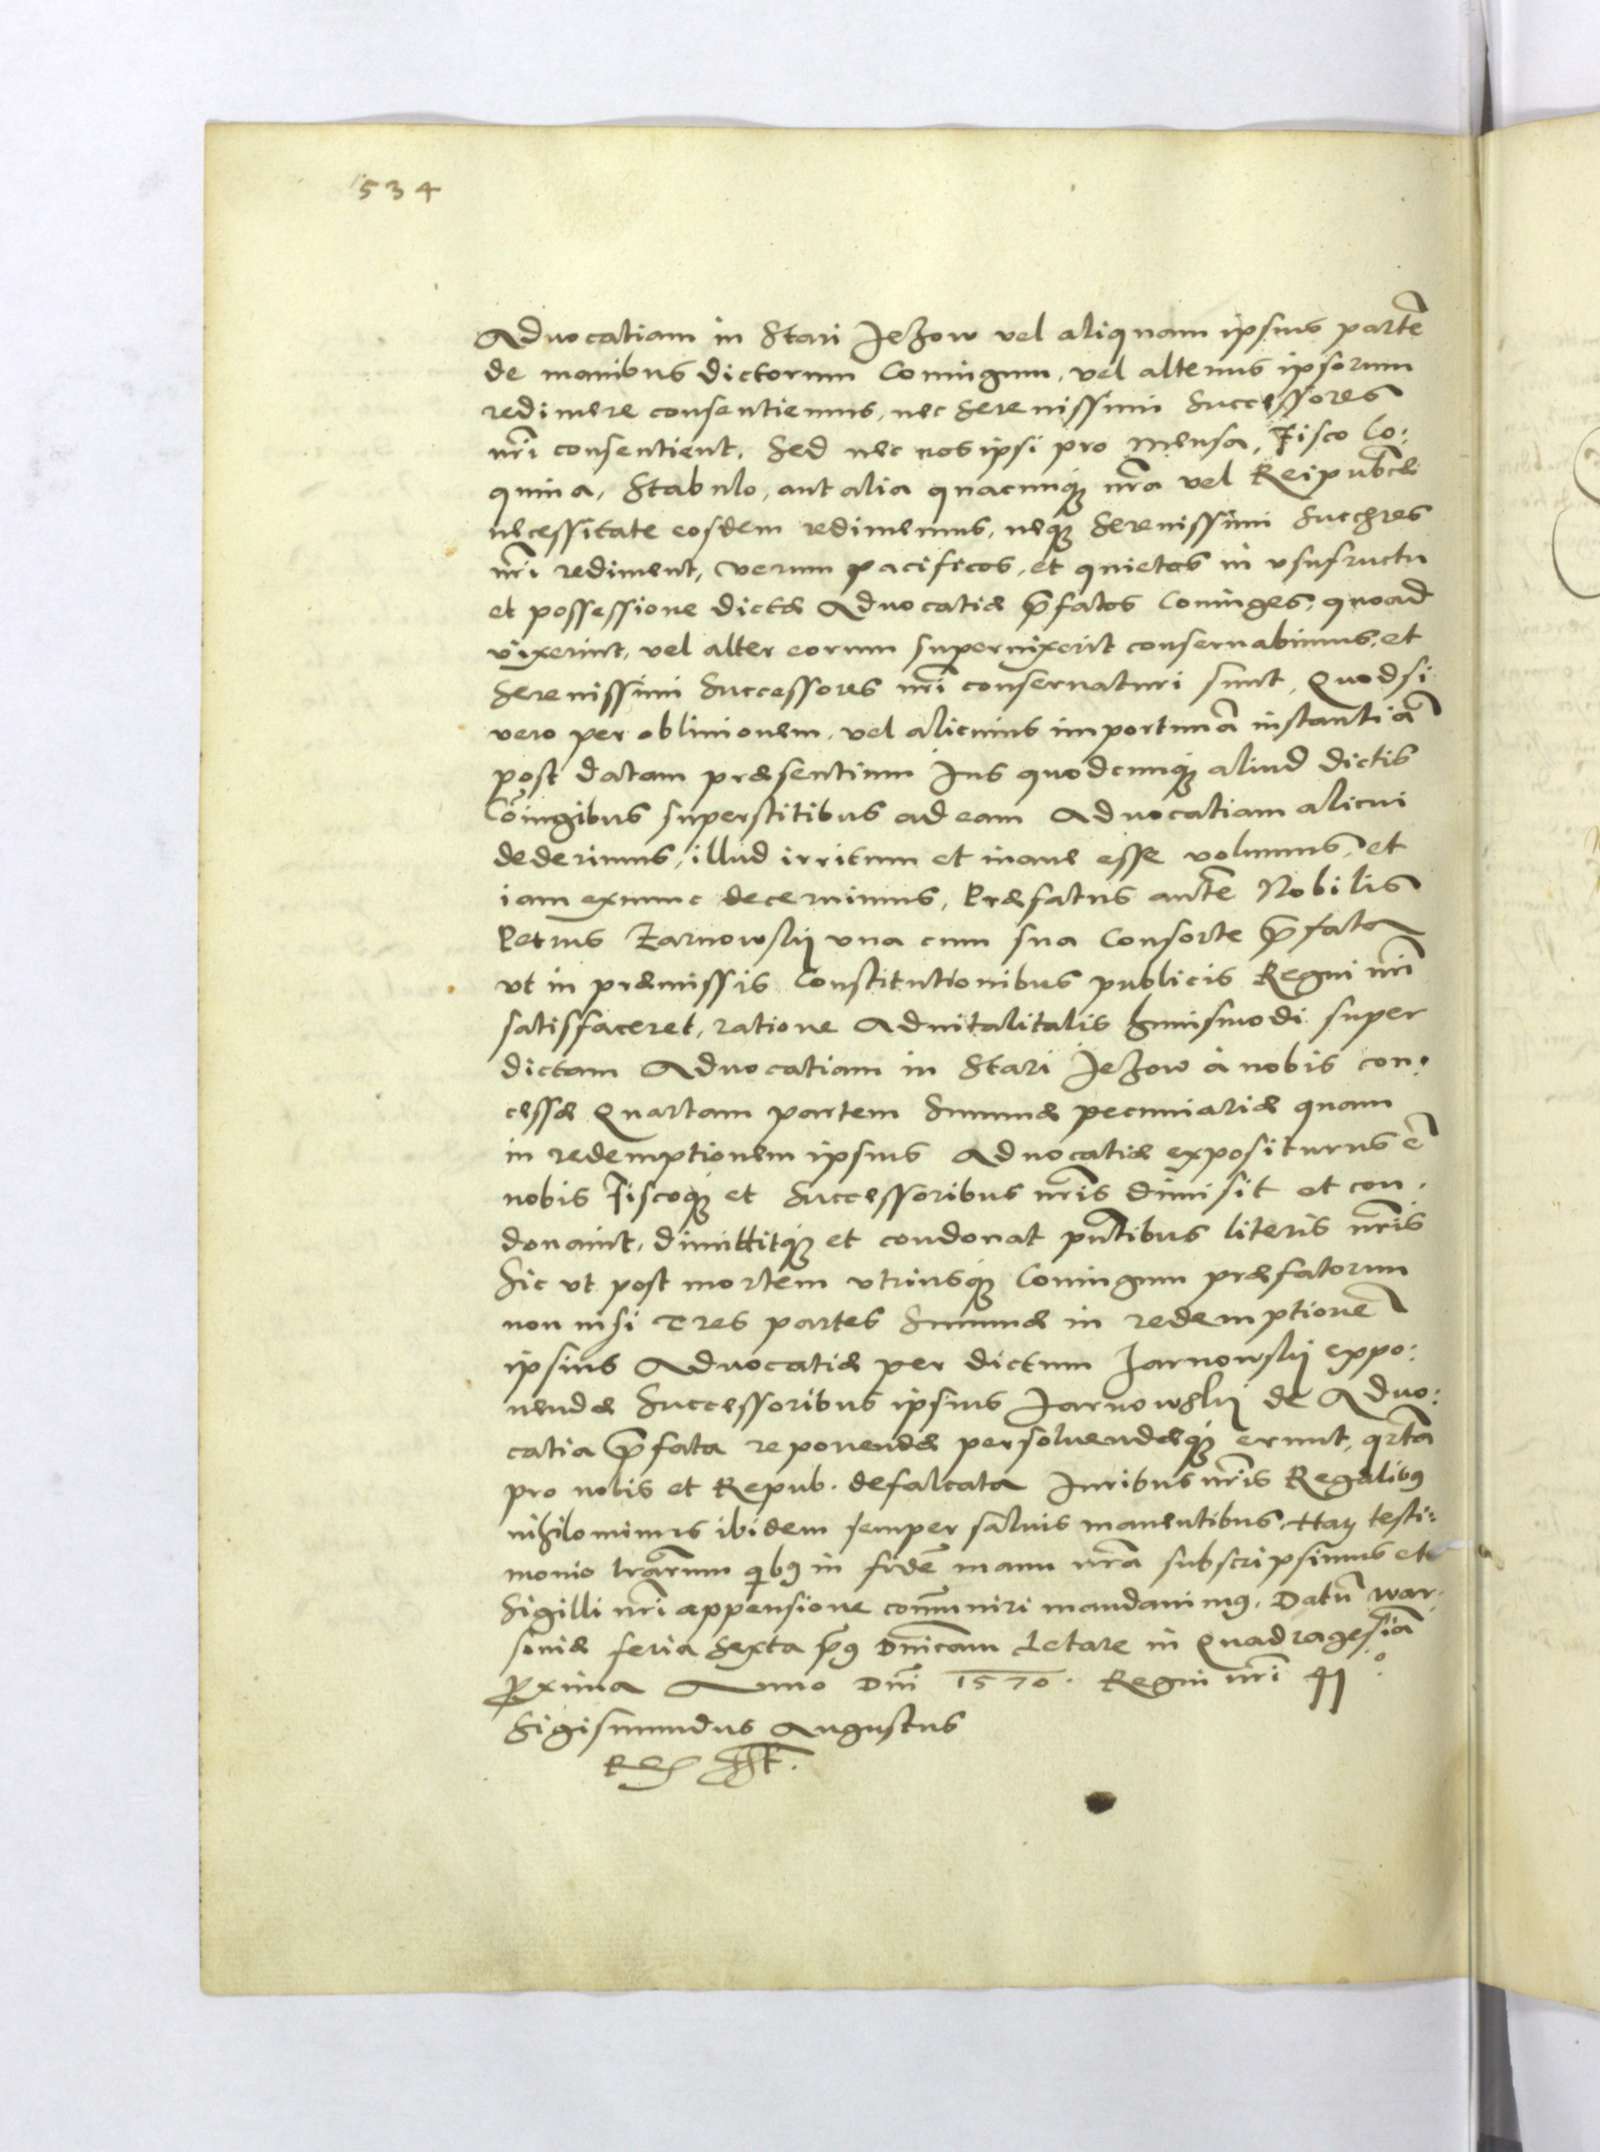 534
Aduocatiam in Stari Jeżow vel aliquam ipsius partē
de manibus dictorum Coniugum, vel alterius ipsorum
redimere consentiemus, nec Serenissimi Successores
nrī consentient. Sed nec nos ipsi pro Mensa, Fisco Co:
quina, Stabulo, aut alia quacunq; nrā vel Reipublcæ
necessitate eosdem redimemus, neq; Serenissimi Succres
nrī rediment, verum pacificos, et quietos in vsufructu
et possessione dictæ Aduocatiæ p̄fatos Coniuges, quoad
vixerint, vel alter eorum superuixerit conseruabimus, et
Serenissimi Successores nrī conseruaturi sunt, Quodsi
vero per obliuionem, vel alicuius importunā instantiā
post datam præsentium Jus quodcunq; aliud dictis
Cōiugibus superstitibus ad eam Aduocatiam alicui
dederimus, illud irritum et inane esse volumus, et
iam exnunc decernimus, Præfatus autē Nobilis
Petrus Żarnowsky vna cum sua Consorte p̄fata
vt in præmissis Constitutionibus publicis Regni nrī
satisfaceret, ratione Aduitalitatis huiusmodi super
dictam Aduocatiam in Stari Jeżow à nobis con:
cessæ Quartam partem Summæ pecuniariæ quam
in redemptionem ipsius Aduocatiæ expositurus ē
nobis Fiscoq; et Successoribus nrīs dimisit et con.
donauit, dimittitq; et condonat pn̄tibus literis nrīs
Sic vt post mortem vtriusq; Coniugum præfatorum
non nisi Tres partes Summæ in redemptionē
ipsius Aduocatiæ per dictum Żarnowsky expo:
nendæ Successoribus ipsius Żarnowsky de Aduo:
catia p̄fata reponendæ persoluendæq; erunt, qrtā
pro nobis et Repub. defalcata Juribus nrīs Regalib9
nihilominus ibidem semper saluis manentibus, Har testi:
monio lrārum qib9 in fidē manu nrā subscripsimus et
Sigilli nrī appensione com̄uniri mandauim9. Datū War.
souiæ feria Sexta p9 Dn̄icam Letare in Quadragesīa
p̱xima Anno Dn̄i 1570. Regni nrī 41°
Sigismundus Augustus
Rex sst.